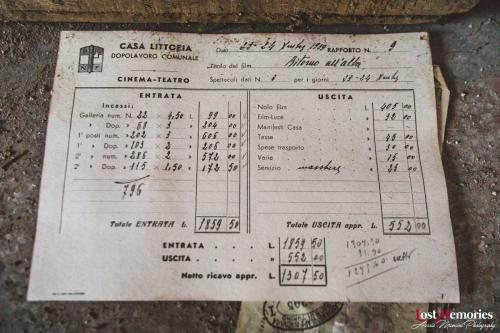 CASA LITTORIA
DOPOLAVORO COMUNALE
CINEMA-TEATRO
Data 23-24 RAPPORTO N. 9
Titolo del film Ritorno all'alba
Spettacoli dati N. per i giorni 23-24
ENTRATA
Incassi:
Galleria num. N. 22 × 4,50 L. 99 00
» Dop. » 68 × 3 » 204 00
1i posti num. » 202 × 3 » 606 00
1i » Dop. » 103 × 2 » 206 00
2i » num. » 286 × 2 » 572 00
2i » Dop. » 115 × 1,50 » 172 50
796
Totale ENTRATA L. 1859 50
USCITA
Nolo film L. 405 00
Film-Luce » 32 00
Manifesti Casa »
Tasse » 45 00
Spese trasporto » 30 00
Varie » 15 00
Servizio » 25 00
Totale USCITA appr. L. 552 00
ENTRATA L. 1859 50
USCITA » 552 00
Netto ricavo appr. L. 1307 50
netto
Lost Memories
Photography